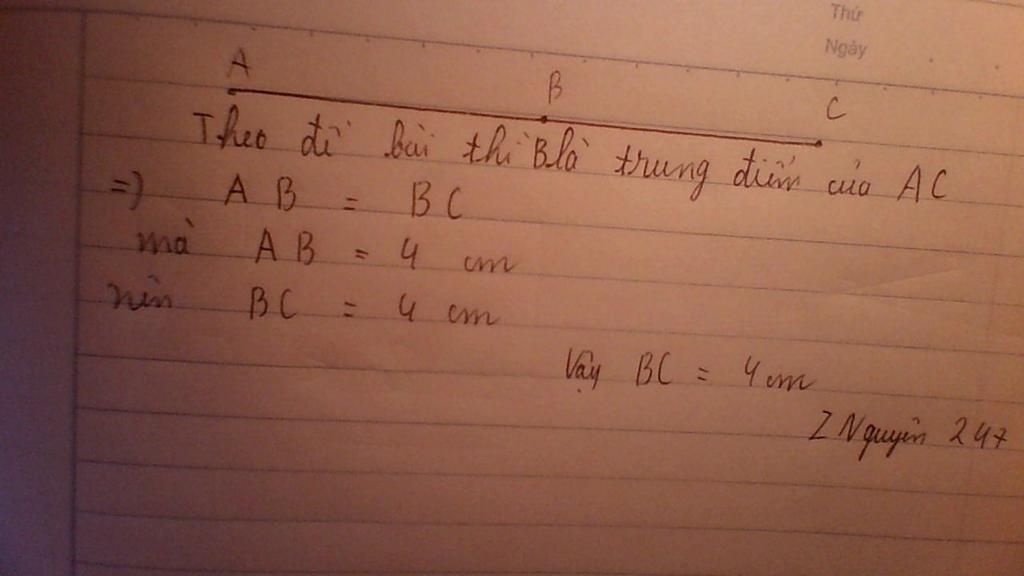 Thứ
Ngày
A
B
C
Theo đề bài thì B là trung điểm của AC
=) AB = BC
mà AB = 4 cm
nên BC = 4 cm
Vậy BC = 4 cm
Z Nguyên 247